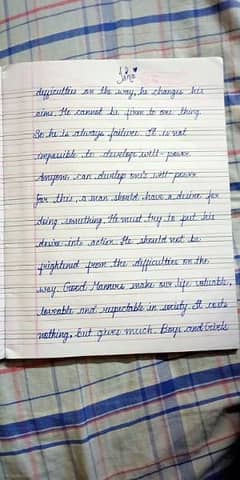 difficulties on the way, he changes his
aims. He cannot be firm to one thing.
So he is always failure. It is not
impossible to develope will-power
Anyone can develop one's will-power
for this, a man should have a desire for
doing something. He must try to put his
desire into action. He should not be
frightened from the difficulties on the
way. Good Manners make our life valuable,
loveable and respectable in society. It costs
nothing, but gives much. Boys and Girls